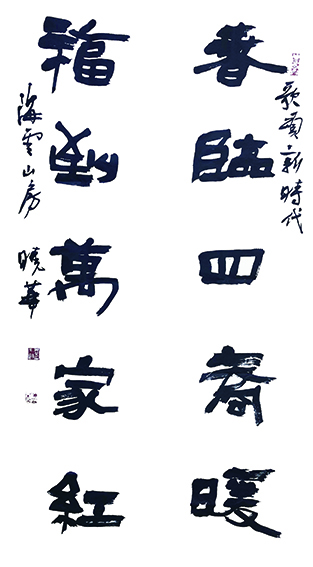 歌頌新時代
春臨四裔暖
福到萬家紅
海雲山房 曉華